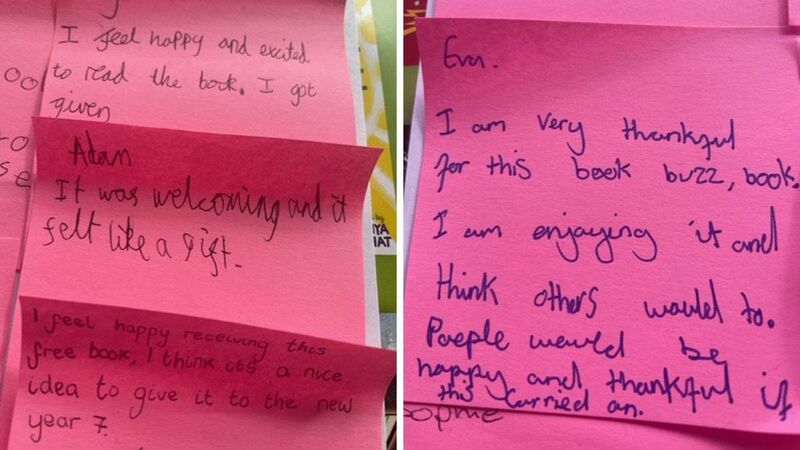 I feel happy and excited
to read the book. I got
given
Adan
It was welcoming and it
felt like a gift.
I feel happy receiving this
free book, I think it's a nice
idea to give it to the new
year 7.
Eva.
I am very thankful
for this book buzz, book.
I am enjoying it and
think others would to.
People would be
happy and thankful if
this carried on.
Sophie